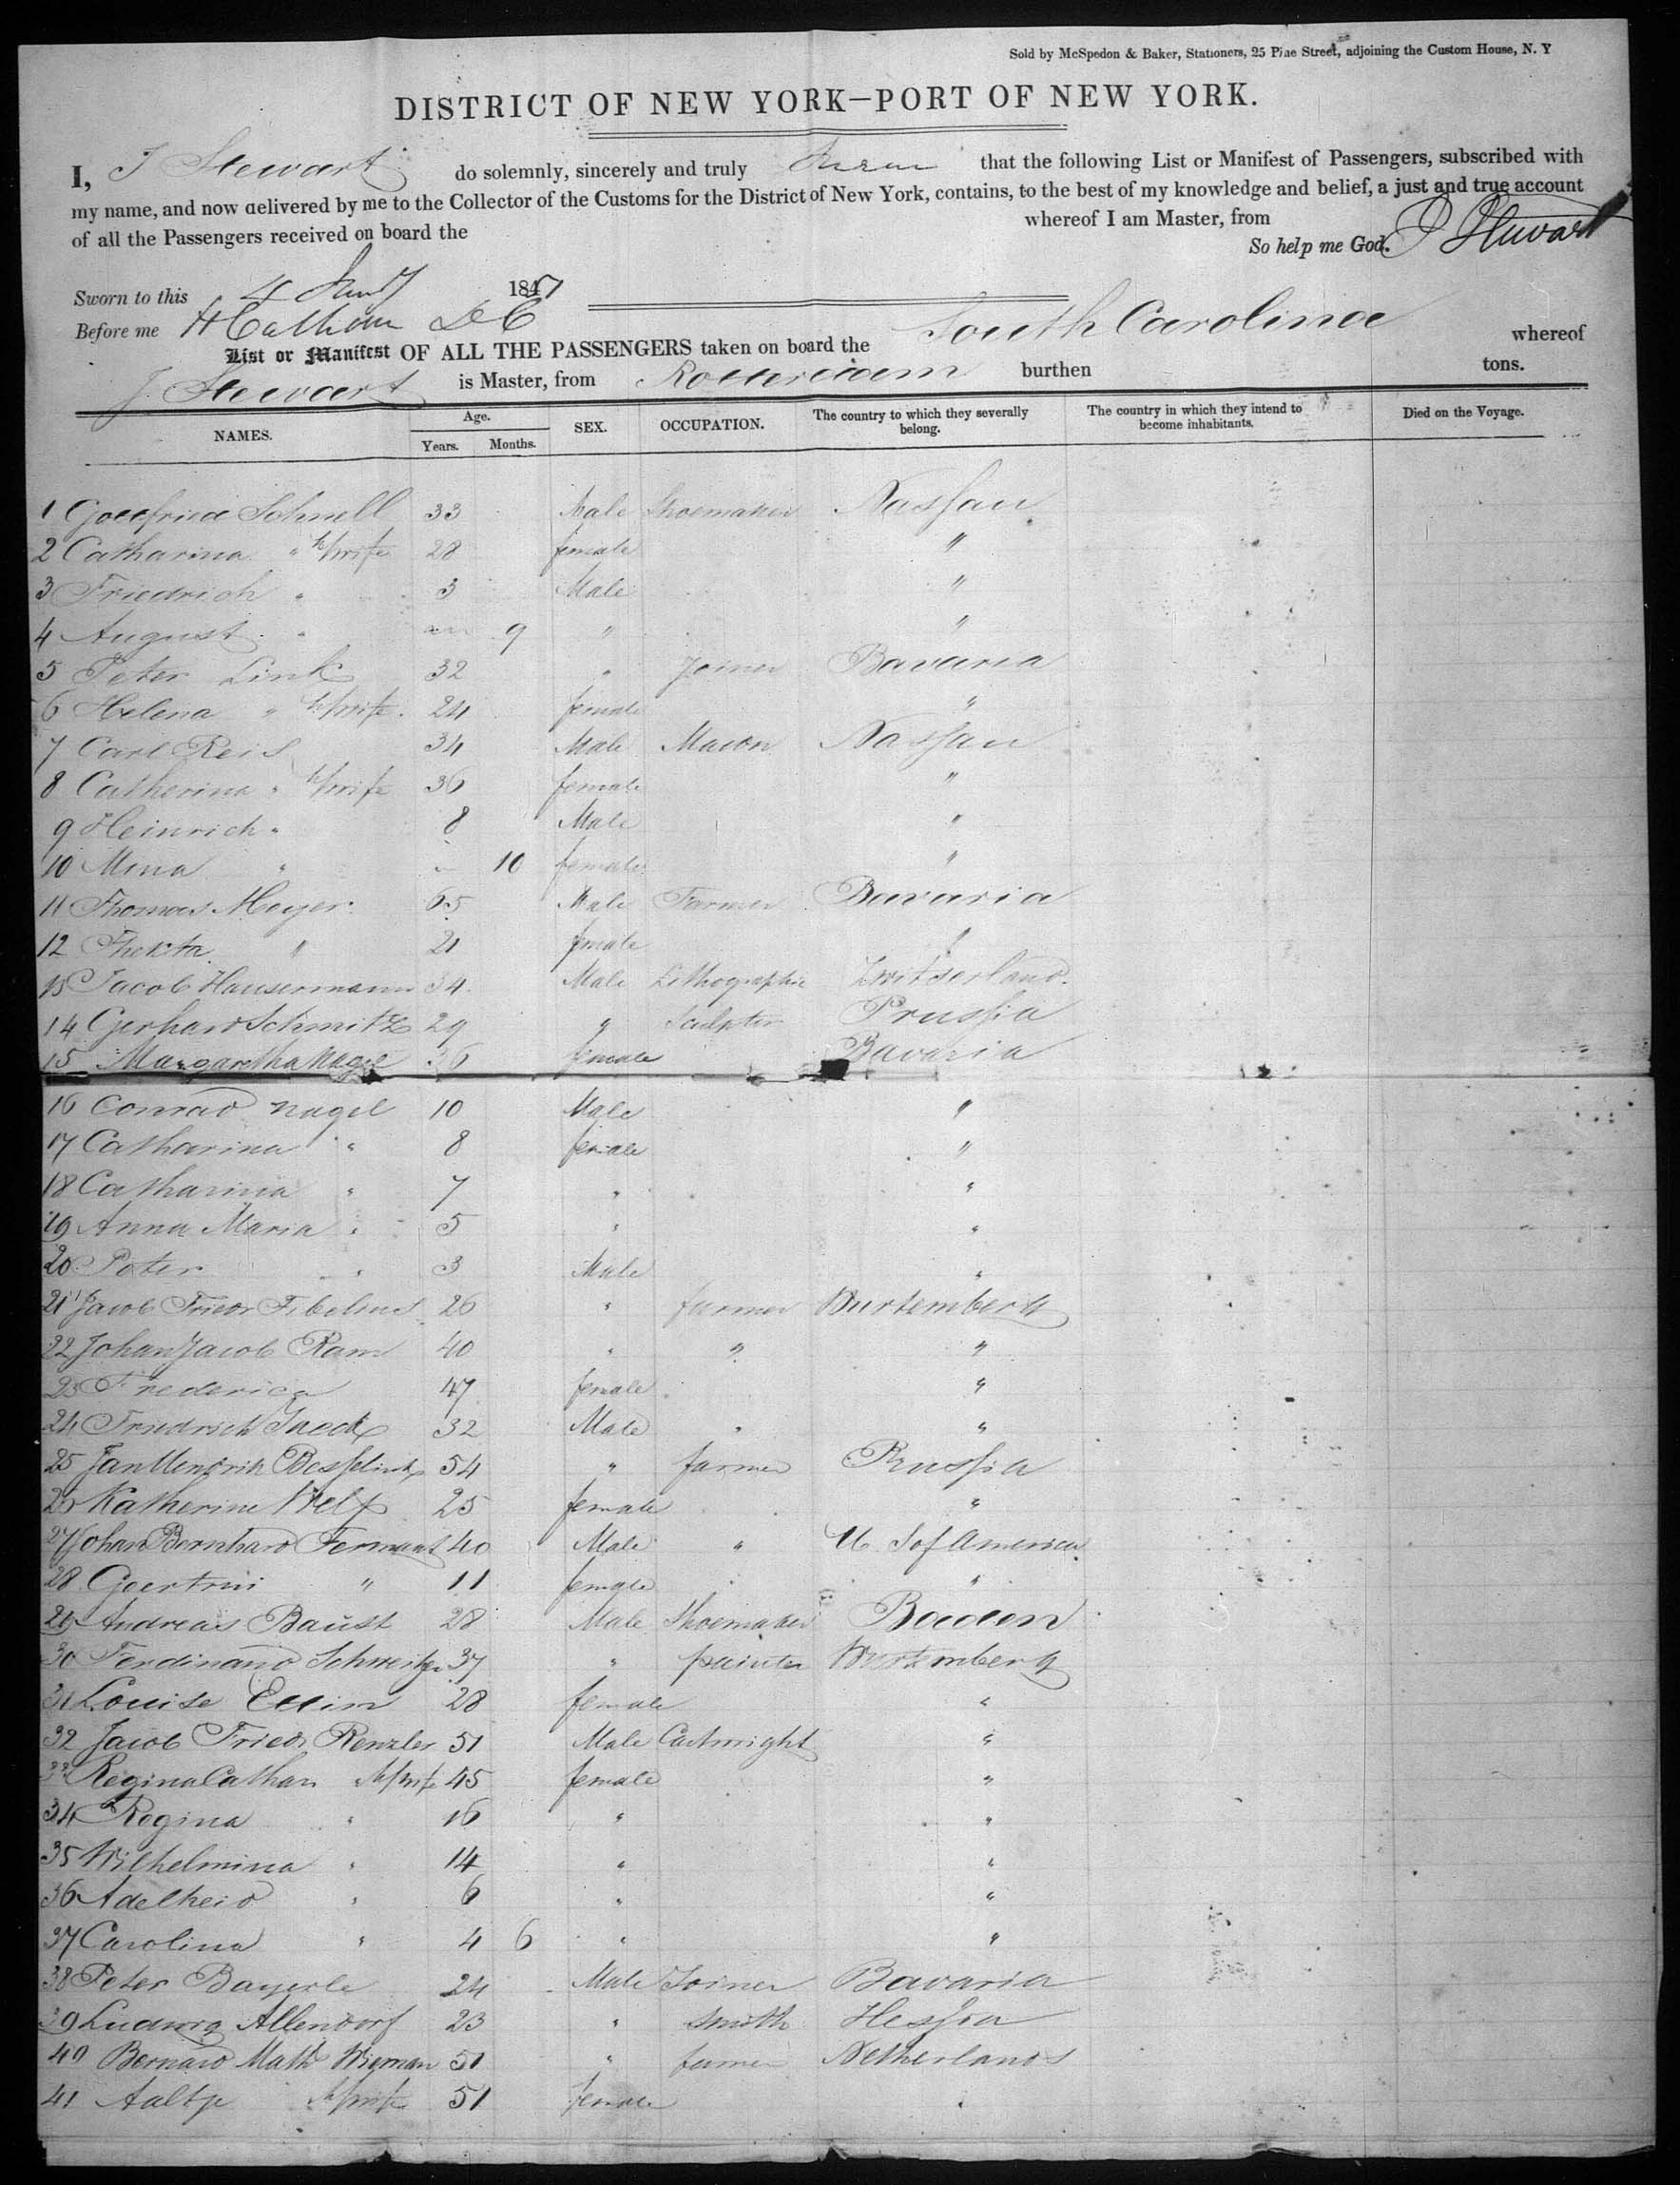 Sold by McSpedon & Baker, Stationers, 25 Pine Street, adjoining the Custom House, N. Y
DISTRICT OF NEW YORK—PORT OF NEW YORK.
I, J Stewart do solemnly, sincerely and truly that the following List or Manifest of Passengers, subscribed with
my name, and now delivered by me to the Collector of the Customs for the District of New York, contains, to the best of my knowledge and belief, a just and true account
of all the Passengers received on board the whereof I am Master, from
So help me God. J Stewart
Sworn to this 4 Jany 1847
Before me H Calhoun D C
List or Manifest OF ALL THE PASSENGERS taken on board the South Carolina whereof
J. Stewart is Master, from Rotterdam burthen tons.
NAMES. Age. Years. Months. SEX. OCCUPATION. The country to which they severally belong. The country in which they intend to become inhabitants. Died on the Voyage.
1 Gottfried Schnell 33 Male Shoemaker Nassau
2 Catharina " wife 28 female "
3 Friedrich " 3 Male "
4 August " 9 " "
5 Peter Link 32 " Joiner Bavaria
6 Helena " wife 24 female "
7 Carl Reis 34 Male Mason Nassau
8 Catherina " wife 36 female "
9 Heinrich " 8 Male "
10 Mina " 10 female "
11 Thomas Meyer 65 Male Farmer Bavaria
12 Thekta " 21 female "
13 Jacob Hausermann 34 Male Lithographie Zwitserland
14 Gerhard Schmitz 29 " Sculpter Prussia
15 Margaretha Nagel 36 female Bavaria
16 Conrad Nagel 10 Male "
17 Catharina " 8 female "
18 Catharina " 7 " "
19 Anna Maria " 5 " "
20 Peter " 3 Male "
21 Jacob Friedr 26 " farmer Wurtemberg
22 Johan Jacob Ram 40 " " "
23 Frederica 47 female "
24 Friedrich 32 Male " "
25 Jan Hendrik 54 " farmer Prussia
26 Katherine 25 female "
27 Johan Bernhard 40 Male " U. S of America
28 " 11 female "
29 Andreas Baust 28 Male Shoemaker Baden
30 Ferdinand Schweitzer 37 " painter Wurtemberg
31 Louise 28 female "
32 Jacob Friedr Renzler 51 Male Cartwright "
33 Regina Cathar wife 45 female "
34 Regina " 16 " "
35 Wilhelmina " 14 " "
36 Adelheid " 6 " "
37 Carolina " 4 6 " "
38 Peter Bayerle 24 Male Joiner Bavaria
39 Ludwig Allendorf 23 " smith Hessia
40 Bernard Math Wieman 51 " farmer Netherlands
41 Aaltje wife 51 female "